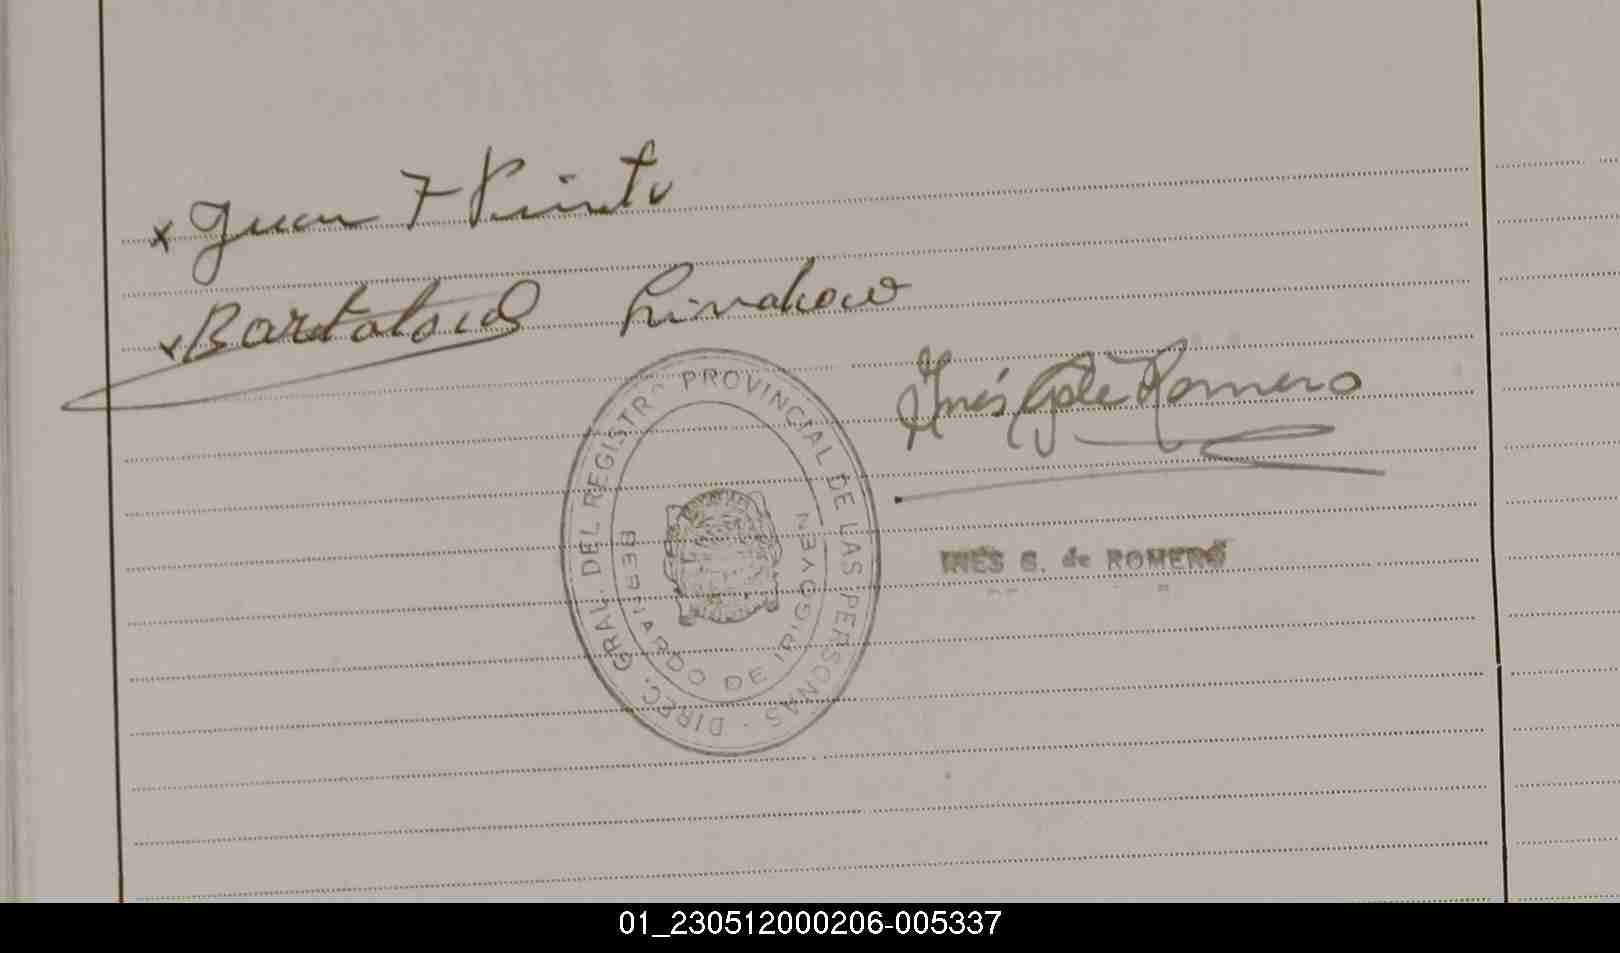 x Juan F Pinto
x Bartolomé
Inés G de Romero
DIREC. GRAL. DEL REGISTRO PROVINCIAL DE LAS PERSONAS
DE IRIGOYEN
INÉS G. de ROMERO
01_230512000206-005337